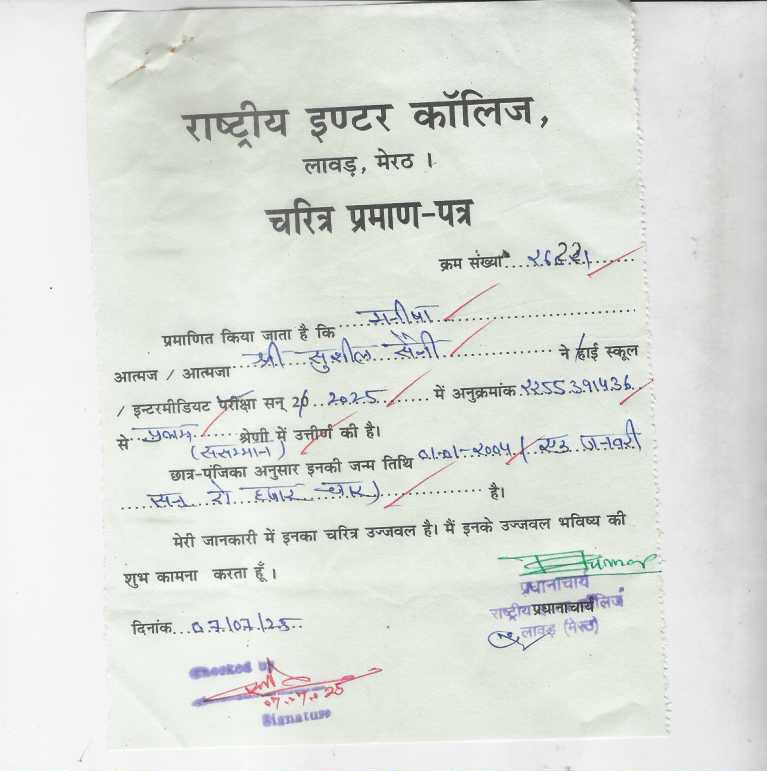 राष्ट्रीय इण्टर कॉलिज,
लावड़, मेरठ ।
चरित्र प्रमाण-पत्र
क्रम संख्या
प्रमाणित किया जाता है कि मनीषा
आत्मज / आत्मजा श्री सुशील सैनी ने हाई स्कूल
/ इन्टरमीडियट परीक्षा सन् 20 2025 में अनुक्रमांक 2255391436
से प्रथम श्रेणी में उत्तीर्ण की है।
(ससम्मान)
छात्र-पंजिका अनुसार इनकी जन्म तिथि 01-01-2004 ( एक जनवरी
सन दो हजार चार) है।
मेरी जानकारी में इनका चरित्र उज्जवल है। मैं इनके उज्जवल भविष्य की
शुभ कामना करता हूँ ।
Kumar
प्रधानाचार्य
राष्ट्रीय प्रधानाचार्य लिज
लावड़ (मेरठ)
दिनांक...07/07/25..
Checked by
07.7.25
Signature